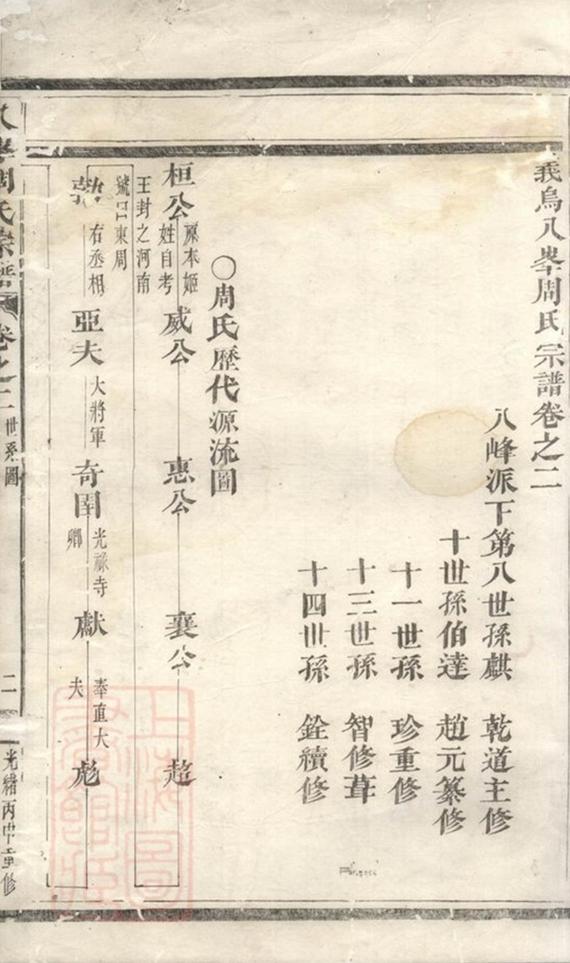 義烏八峯周氏宗譜卷之二
八峰派下第八世孫麒 乾道主修
十世孫伯達 趙元纂修
十一世孫 珍重修
十三世孫 智修葺
十四世孫 銓續修
〇周氏歷代源流圖
桓公 原本姬姓自考王封之河南號曰東周 威公 惠公 襄公 趙
勃 右丞相 亞夫 大將軍 奇圉 光祿寺卿 獻 奉直大夫 彪
八峯周氏宗譜 卷之二 世系圖 二 光緒丙申重修